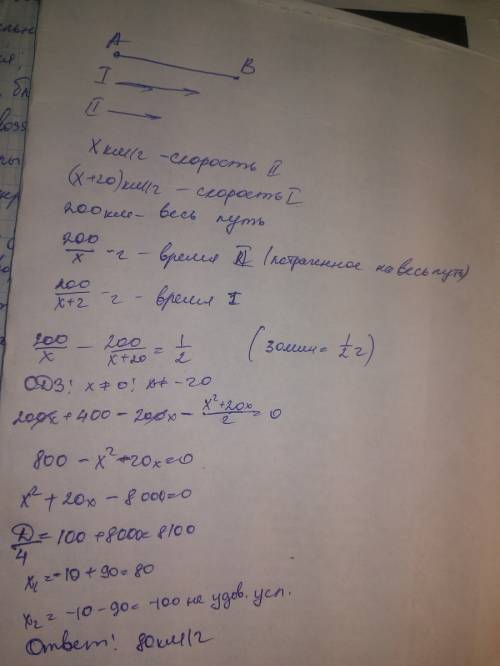 A
B
I
II
x км/ч - скорость II
(x+20) км/ч - скорость I
200 км - весь путь
200/x ч - время II (потраченное на весь путь)
200/x+2 ч - время I
200/x - 200/x+20 = 1/2 (30 мин = 1/2 ч)
ОДЗ! x ≠ 0! x ≠ -20
200x + 400 - 200x - x²+20x/2 = 0
800 - x² - 20x = 0
x² + 20x - 8000 = 0
D/4 = 100 + 8000 = 8100
x₁ = -10 + 90 = 80
x₂ = -10 - 90 = -100 не удов. усл.
Ответ! 80 км/ч